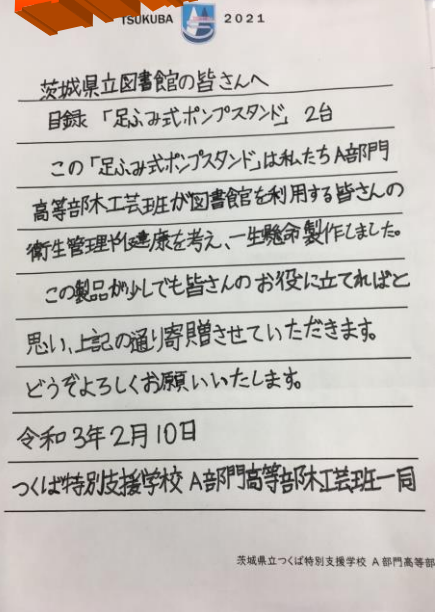 TSUKUBA 2021
茨城県立図書館の皆さんへ
目録 「足ふみ式ポンプスタンド」 2台
この「足ふみ式ポンプスタンド」は私たちA部門
高等部木工芸班が図書館を利用する皆さんの
衛生管理や健康を考え、一生懸命製作しました。
この製品が少しでも皆さんのお役に立てればと
思い、上記の通り寄贈させていただきます。
どうぞよろしくお願いいたします。
令和3年2月10日
つくば特別支援学校 A部門高等部木工芸班一同
茨城県立つくば特別支援学校 A部門高等部